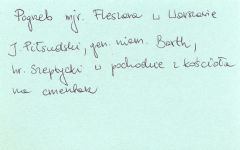 Pogrzeb mjr. Fleszara w Warszawie
J. Piłsudski, gen. niem. Barth,
hr. Szeptycki w pochodzie z kościoła
na cmentarz